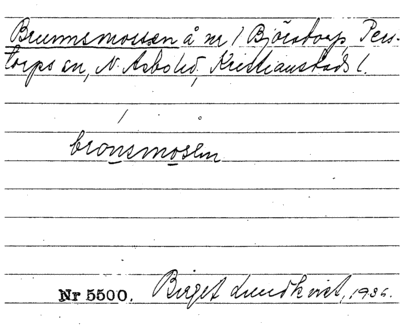 Brunnsmossen å nr 1 Björstorp, Pers-
torps sn, N. Åsbo hd, Kristianstads l.
bronsmosen
Nr 5500. Birget Lundkvist, 1936.